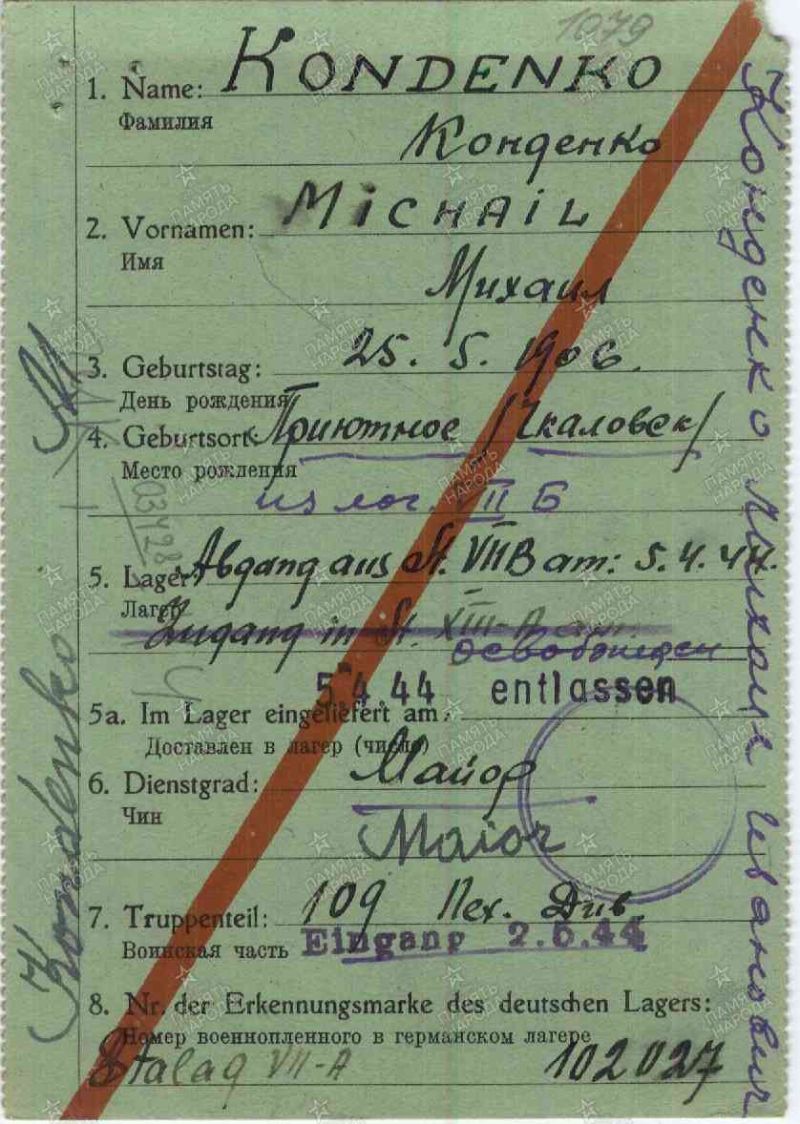 1079
1. Name: KONDENKO
Фамилия
Конденко
2. Vornamen: MICHAIL
Имя
Михаил
3. Geburtstag: 25. 5. 1906.
День рождения
4. Geburtsort: Приютное /Чкаловск/
Место рождения
из лаг. VII Б
5. Lager Abgang aus St. VII B am: 5.4.44.
Лагерь
Zugang in St. XIII-A am:
освобожден
5 4 44 entlassen
5a. Im Lager eingeliefert am:
Доставлен в лагер (число)
6. Dienstgrad: Майор
Чин
Maior
7. Truppenteil: 109 Пех. Див.
Воинская часть Eingang 2.6.44
8. Nr. der Erkennungsmarke des deutschen Lagers:
Номер военнопленного в германском лагере
Stalag VII-A 102027
Kondenko
Конденко Михаил Иванович
ПАМЯТЬ НАРОДА